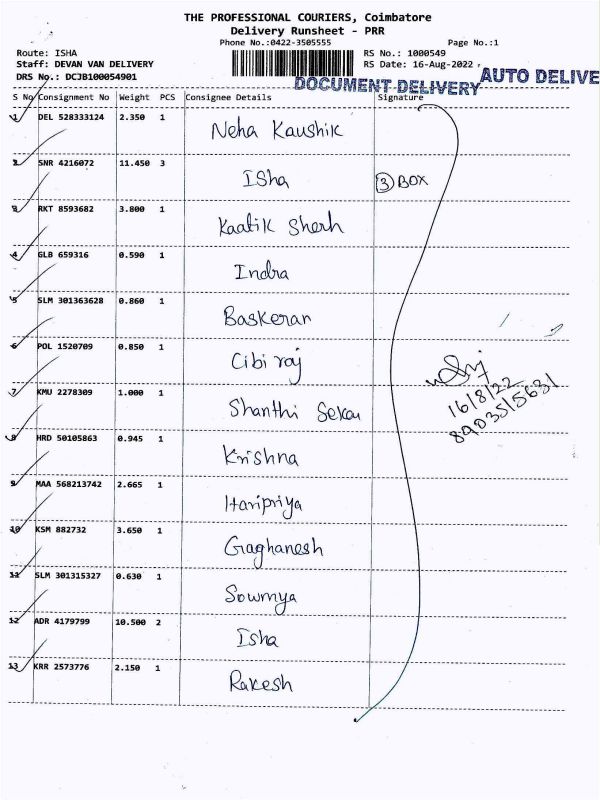 THE PROFESSIONAL COURIERS, Coimbatore
Delivery Runsheet - PRR
Phone No.:0422-3505555 Page No.:1
Route: ISHA RS No.: 1000549
Staff: DEVAN VAN DELIVERY RS Date: 16-Aug-2022
DRS No.: DCJB100054901
DOCUMENT DELIVERY AUTO DELIVE
S No Consignment No Weight PCS Consignee Details Signature
1 DEL 528333124 2.350 1 Neha Kaushik
2 SNR 4216072 11.450 3 Isha 3 BOX
3 RKT 8593682 3.800 1 Kaatik Sherh
4 GLB 659316 0.590 1 Indra
5 SLM 301363628 0.860 1 Baskeran
6 POL 1520709 0.850 1 Cibi raj
7 KMU 2278309 1.000 1 Shanthi Sekar
16/8/22
8903515631
8 HRD 50105863 0.945 1 Krishna
9 MAA 568213742 2.665 1 Haripriya
10 KSM 882732 3.650 1 Gaghanesh
11 SLM 301315327 0.630 1 Sowmya
12 ADR 4179799 10.500 2 Isha
13 KRR 2573776 2.150 1 Rakesh